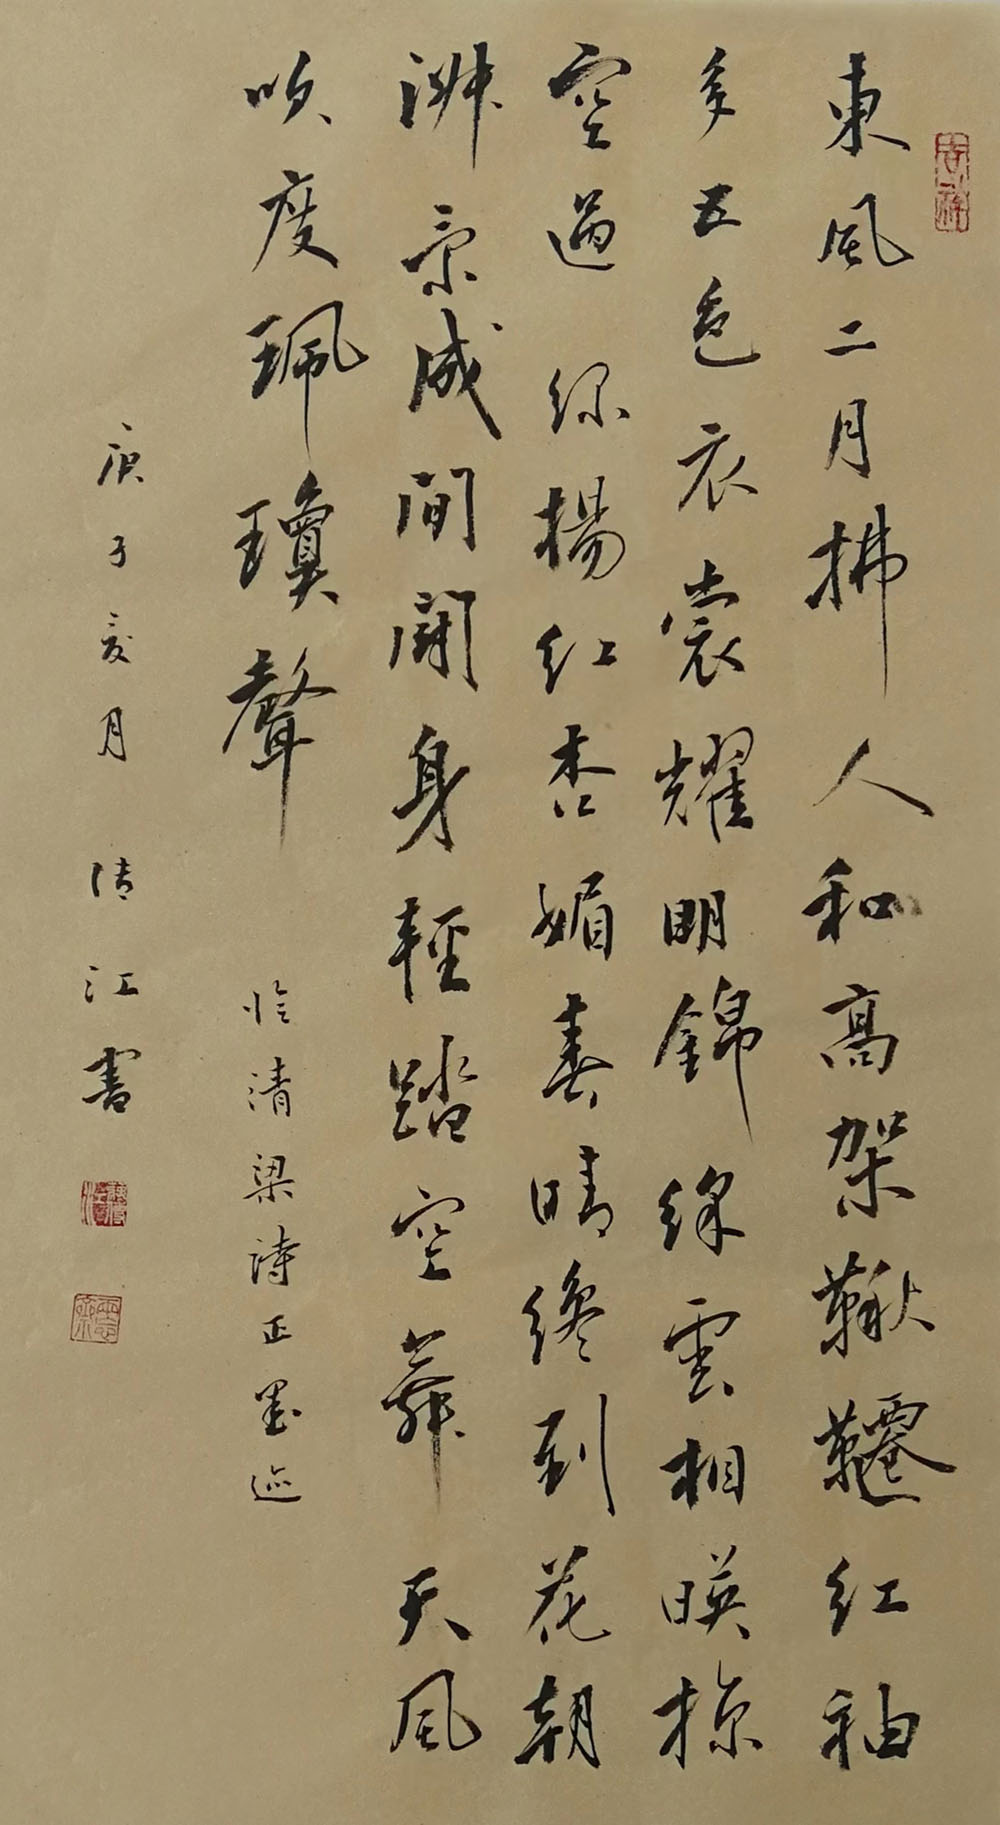 東風二月拂人和高架鞦韆紅袖
多五色衣裳耀明錦綵雲相暎掠
空過綠楊紅杏媚春晴纔到花朝
淑景成間闘身輕踏空舞天風
吹度珮瓊聲
臨清梁詩正墨迹
庚子亥月 清江書